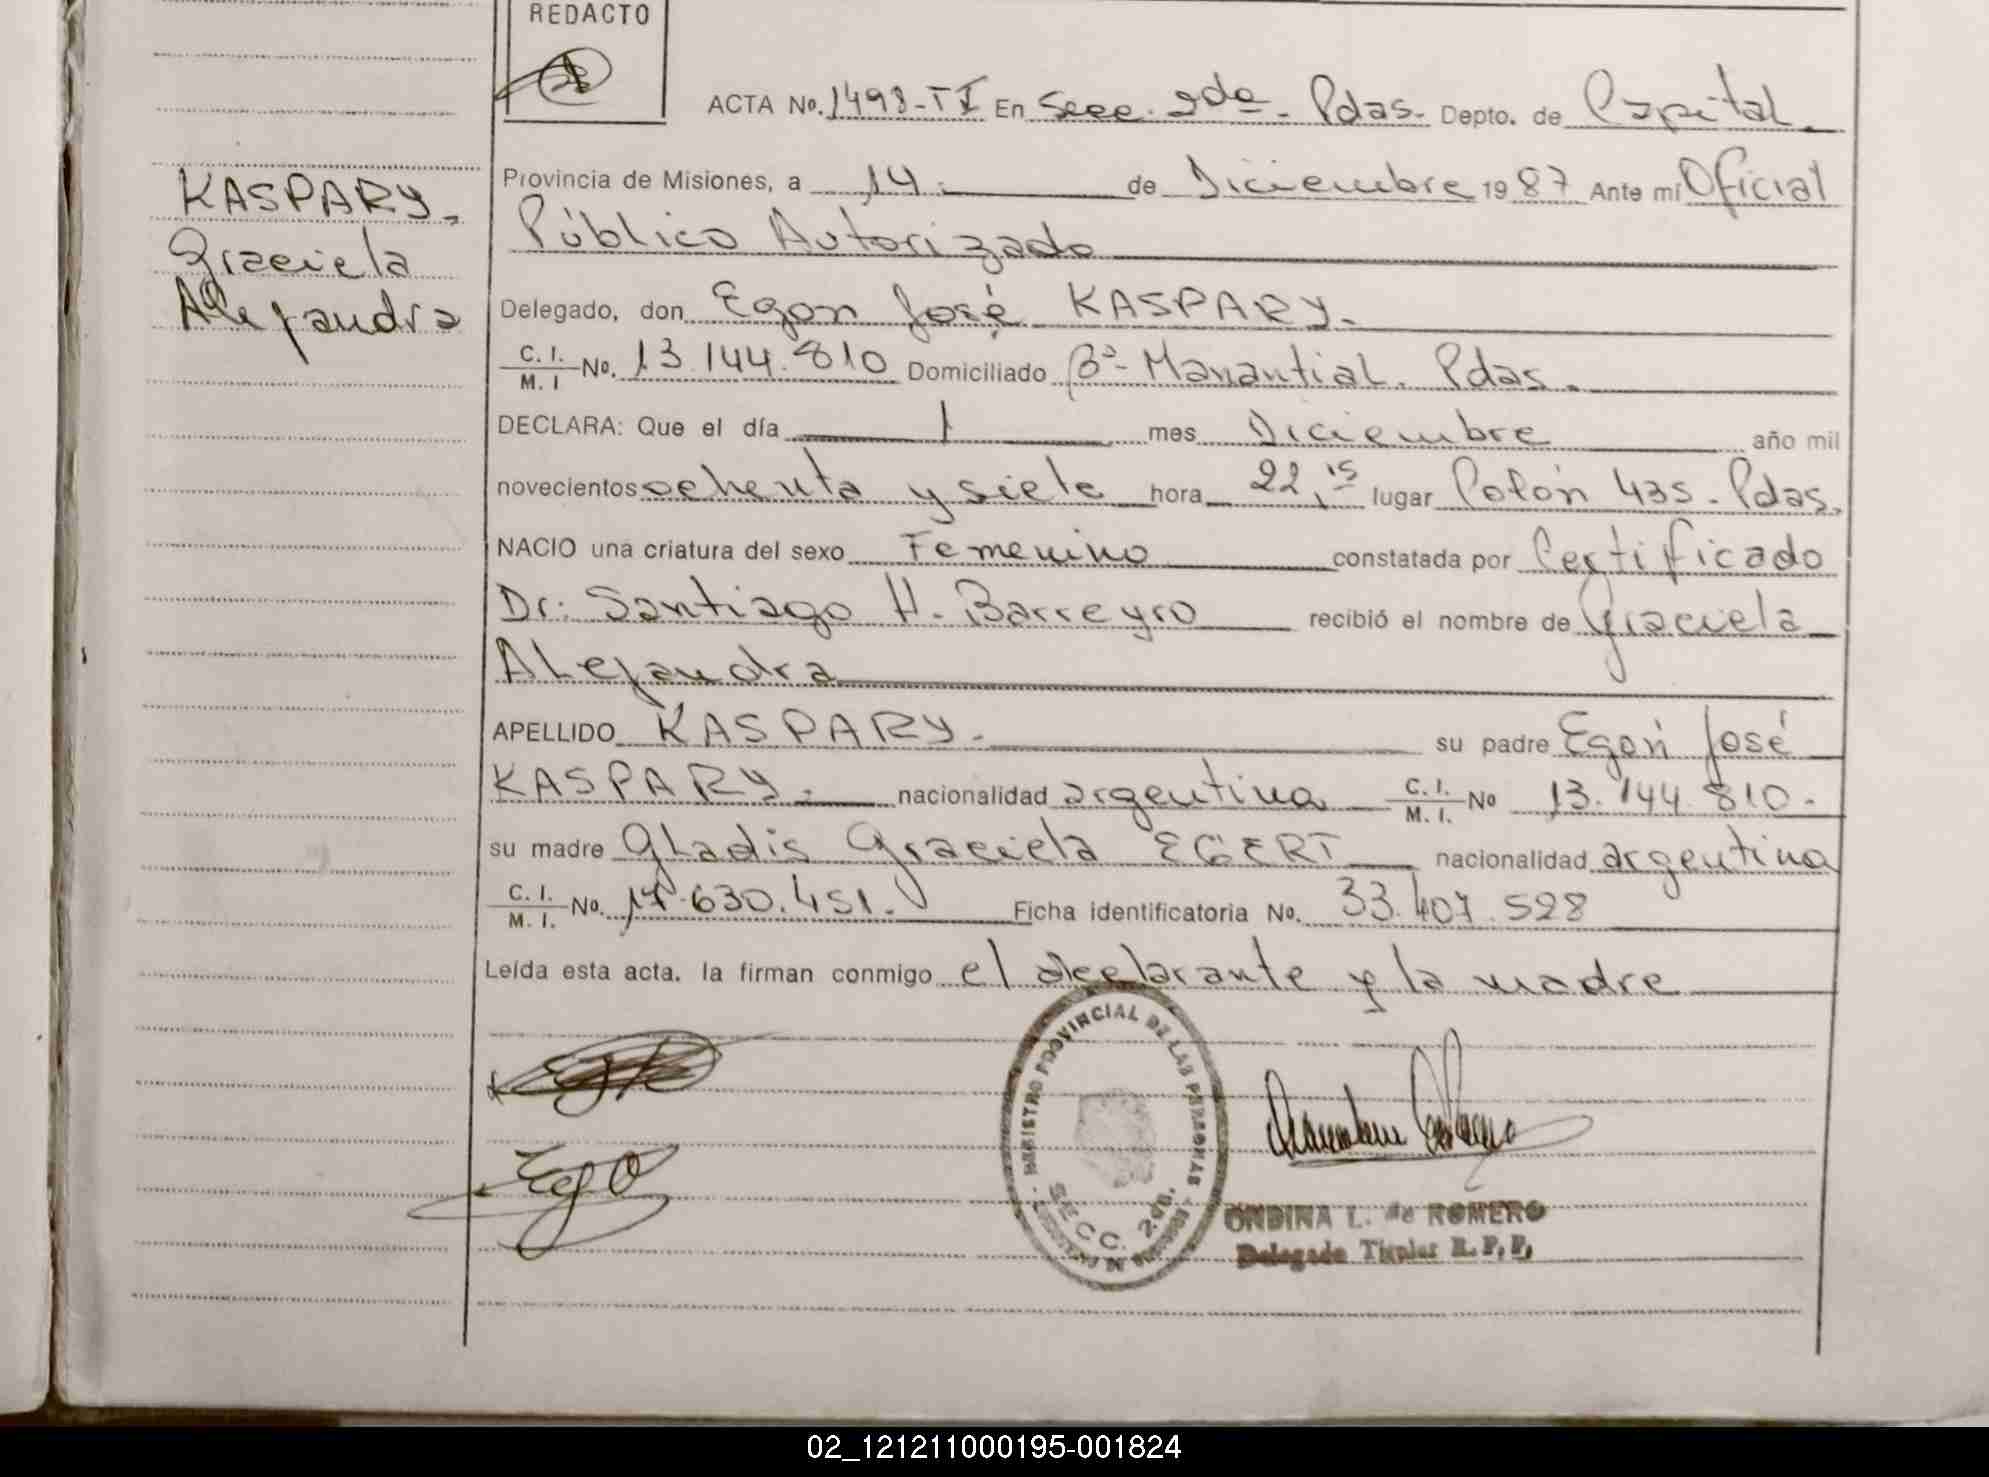 REDACTO
ACTA No. 1498-TI En Secc. 2da - Pdas. Depto. de Capital.
KASPARY.
Graciela
Alejandra
Provincia de Misiones, a 14. de Diciembre 1987 Ante mi Oficial
Público Autorizado
Delegado, don Egon José KASPARY.
C. I. / M. I No. 13.144.810 Domiciliado Bº- Manantial. Pdas.
DECLARA: Que el día 1 mes Diciembre año mil
novecientos ochenta y siete hora 22,15 lugar Colón 435- Pdas.
NACIO una criatura del sexo Femenino constatada por Certificado
Dr: Santiago H. Barreyro recibió el nombre de Graciela
Alejandra
APELLIDO KASPARY. su padre Egon José
KASPARY. nacionalidad argentina C. I. / M. I. No 13.144.810.
su madre Gladis Graciela EGERT nacionalidad argentina
C. I. / M. I. No. 17.630.451. Ficha identificatoria No. 33.407.528
Leída esta acta. la firman conmigo el declarante y la madre
REGISTRO PROVINCIAL DE LAS PERSONAS
SECC. 2da.
ONDINA L. de ROMERO
Delegada Titular R.P.P.
02_121211000195-001824